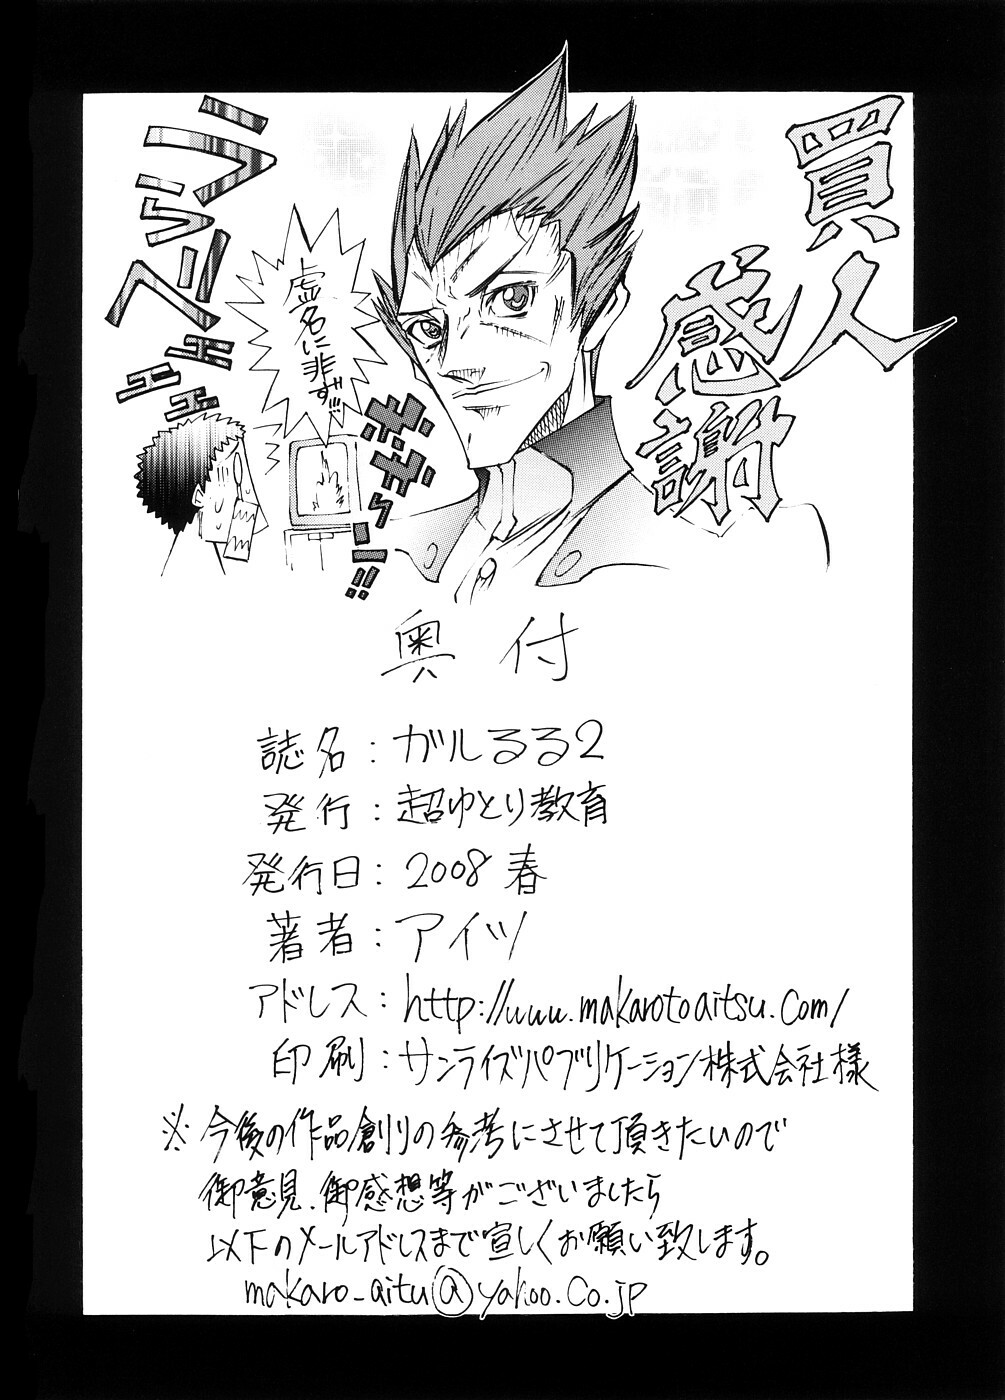 買人
感謝
虚名に非ず!!!
ギュデラーン!!
ララベェェェ
奥付
誌名:ガルるる2
発行:超ゆとり教育
発行日:2008 春
著者:アイツ
アドレス:http://www.makarotoaitsu.com/
印刷:サンライズパブリケーション株式会社様
※今後の作品創りの参考にさせて頂きたいので
御意見、御感想等がございましたら
以下のメールアドレスまで宜しくお願い致します。
makaro-aitu@yahoo.co.jp